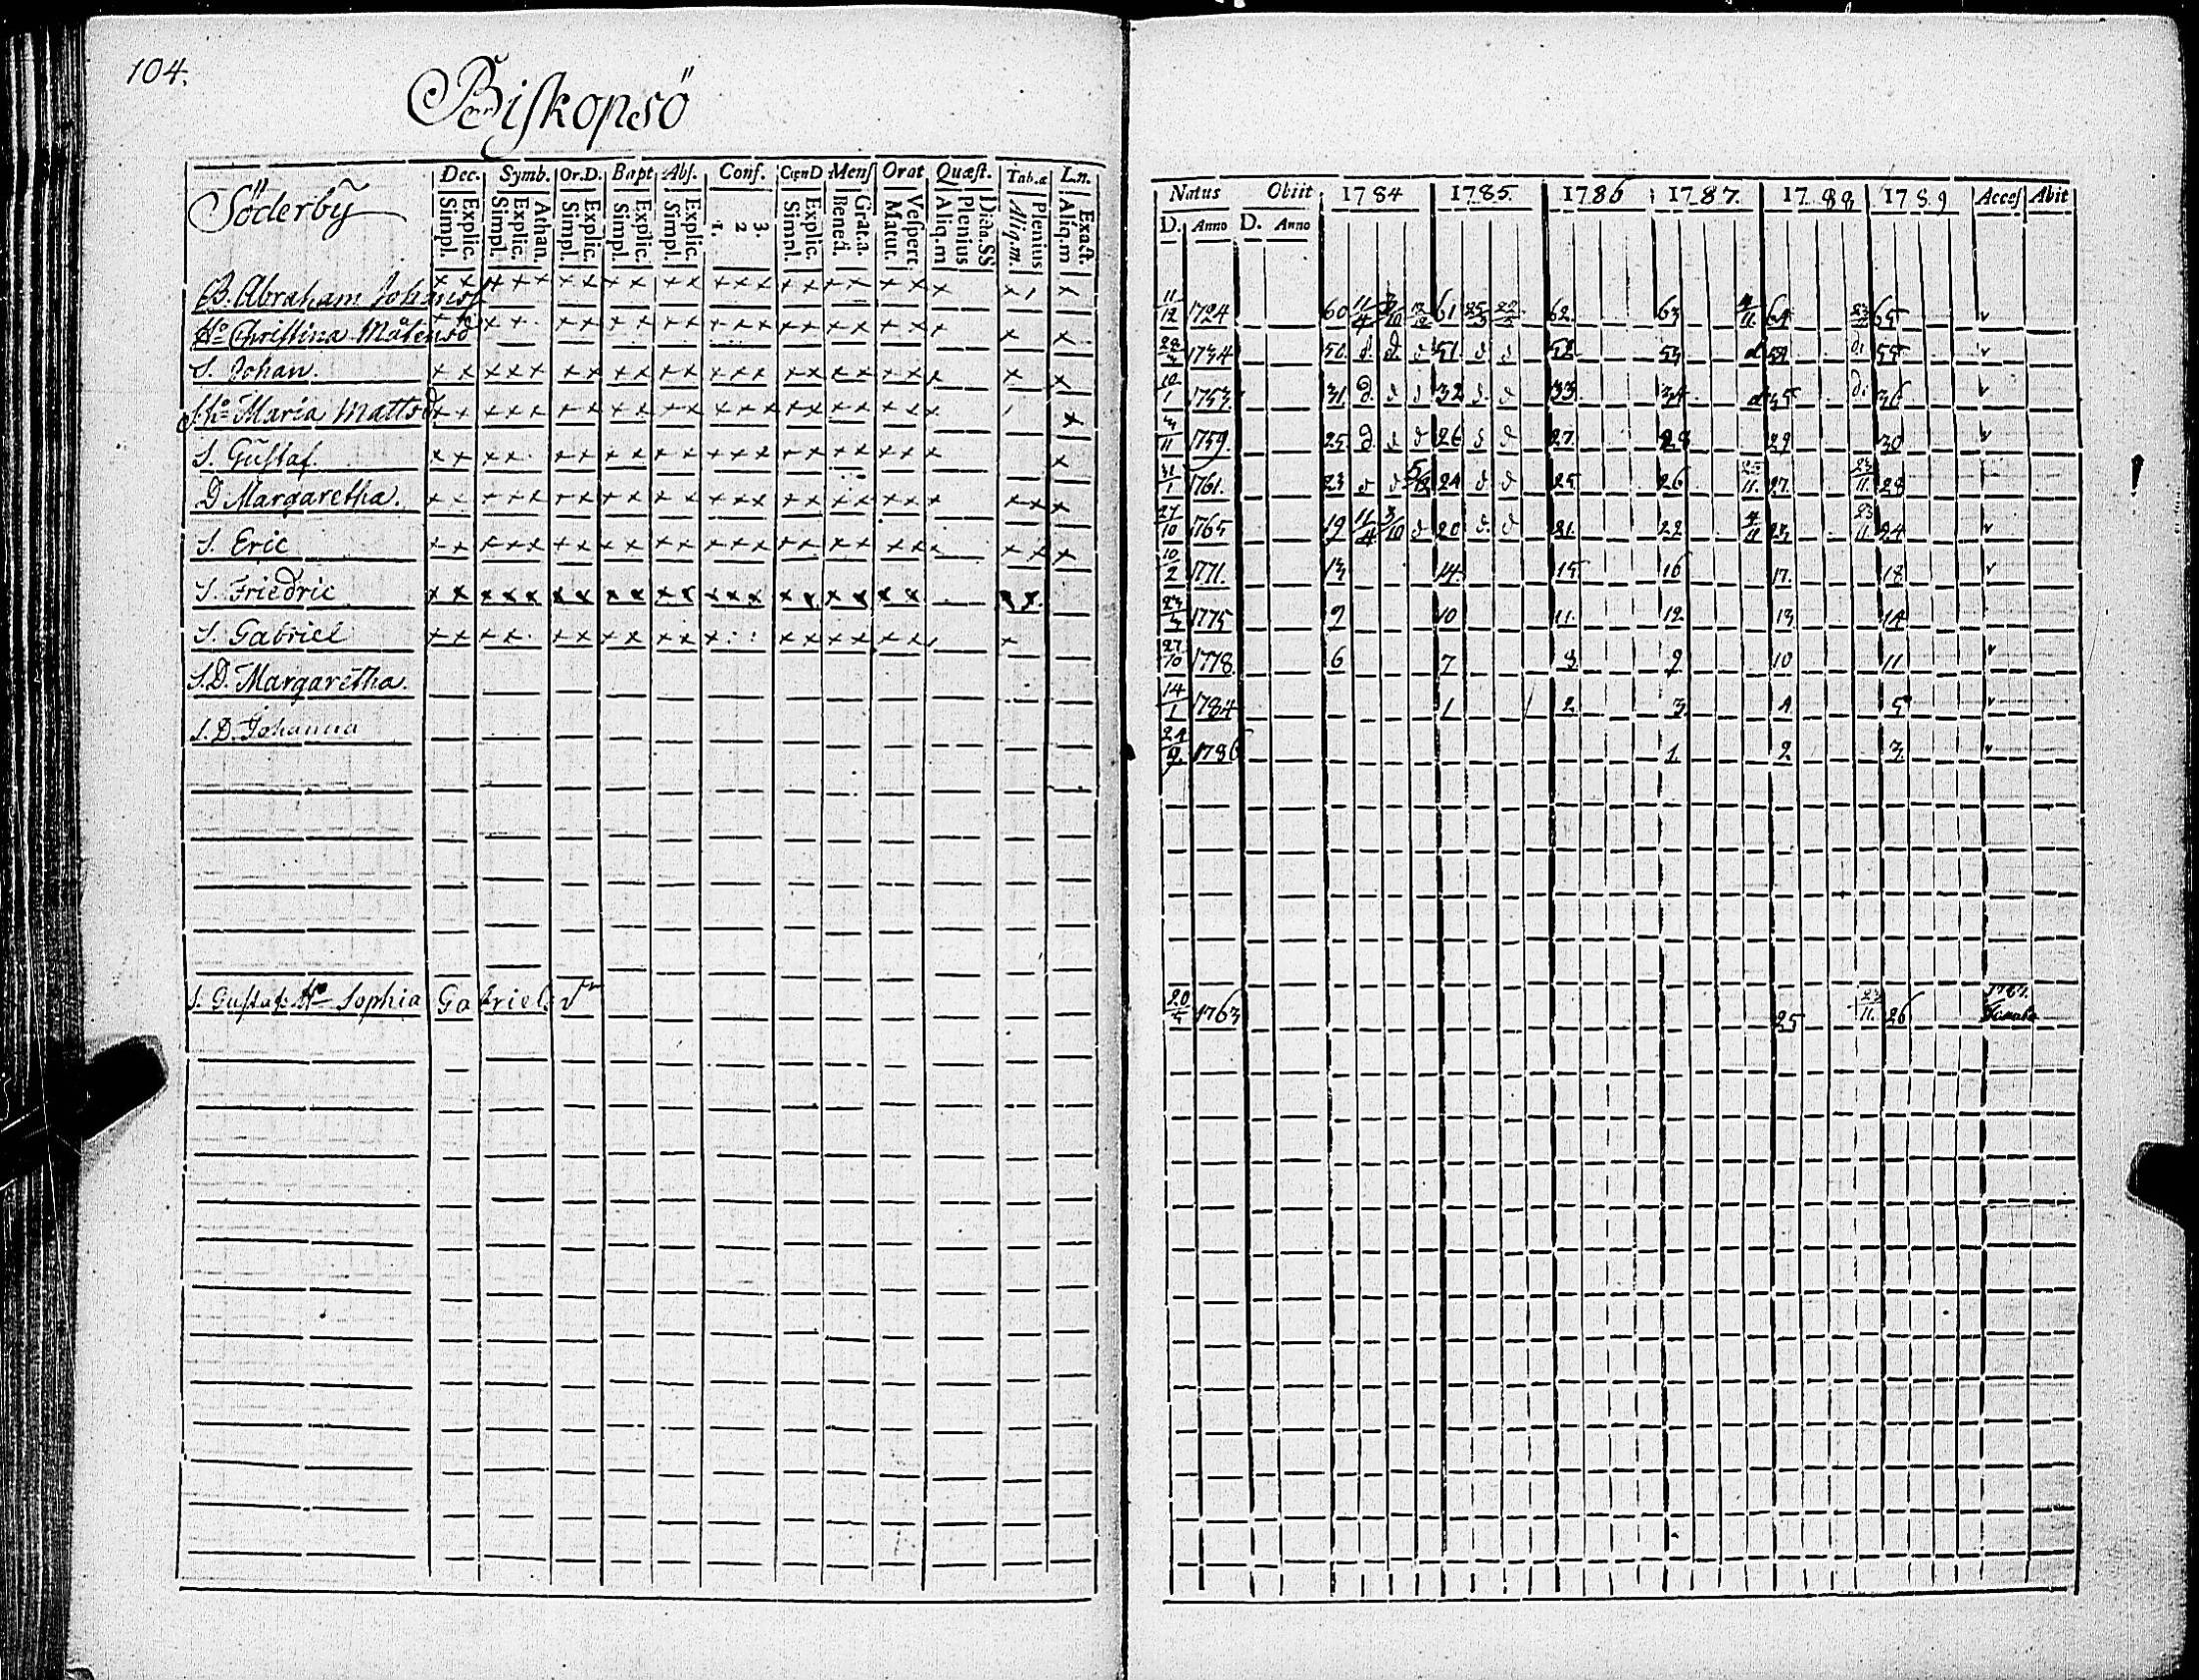 104.
Biskopsö
Söderby
Dec. Symb. Or.D. Bapt Abs. Conf. CœnD Mens Orat Quæst. Tab.æ Ln.
Simpl. Explic. Simpl. Explic. Athan. Simpl. Explic. Simpl. Explic. Simpl. Explic. 1. 2 3. Simpl. Explic. Bened. Grat.a. Matut. Vespert Aliq.m Plenius Dicta.SS Aliq.m. Plenius Aliq.m Exact.
Natus Obiit 1784 1785. 1786 1787. 1788 1789 Acces Abit
D. Anno D. Anno
B. Abraham Johanss 11/12 1724 60 11/4 61 62 63 64 65
Ho Christina Matensd 1734 50 51 52 53 54 55
S. Johan. 10/1 1753 31 32 33 34 35 36
S. Ho Maria Mattsd 1759. 25 26 27 28 29 30
S. Gustaf. 31/1 1761. 23 24 25 26 25/11 27 23/11. 28
D Margaretha. 27/10 1765 19 11/4 3/10 20 21. 22 23 23/11 24
S. Eric 10/2 1771. 13 14 15 16 17. 18
S. Friedric 1775 9 10 11. 12 13 14
S. Gabriel 27/10 1778. 6 7 8 9 10 11
S.D. Margaretha. 14/1 1784 1 2 3 4 5
S.D. Johanna 24/9. 1786 1. 2 3
S. Gustafs Ho Sophia Gabrielsdr 1763 25 23/11. 26 1787.